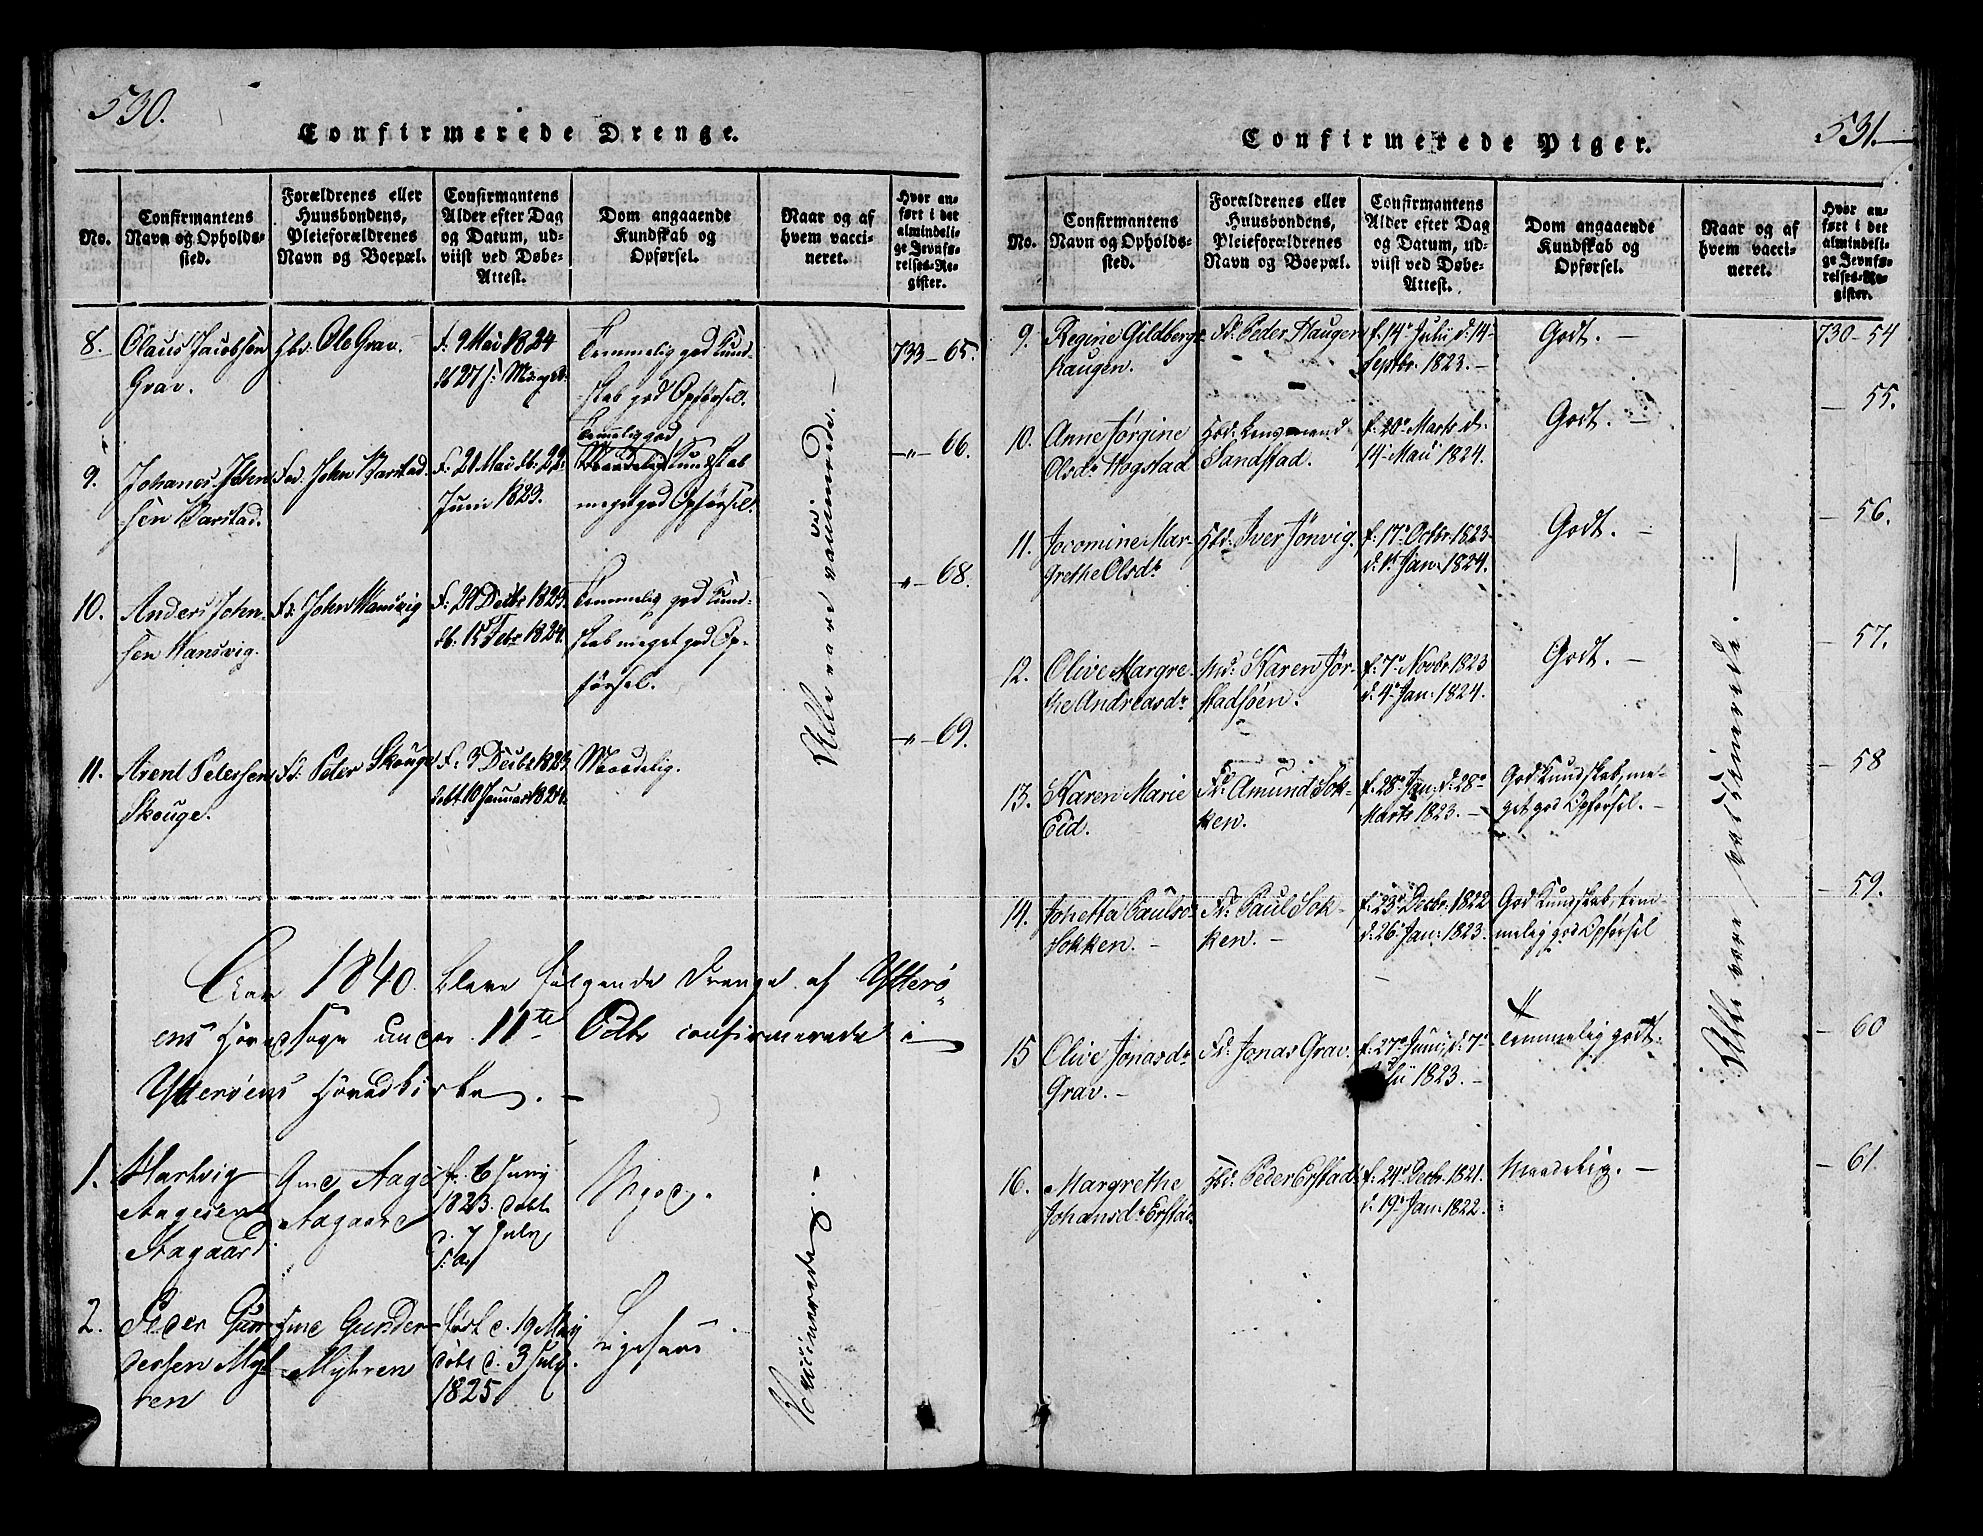 530.
Confirmerede Drenge.
No.
Confirmantens
Navn og Opholds-
sted.
Forældrenes eller
Huusbondens,
Pleieforældrenes
Navn og Boepæl.
Confirmantens
Alder efter Dag
og Datum, ud-
viist ved Døbe-
Attest.
Dom angaaende
Kundskab og
Opførsel.
Naar og af
hvem vacci-
neret.
Hvor an-
ført i det
almindeli-
ge Jevnfø-
relses-Re-
gister.
8. Olaus Jacobsen
Grav.
Hbd. Ole Grav.
F: 9 Mai 1824
db 27
Temmelig god Kund-
skab god Opførsel.
733-65.
9. Johanes John
sen Barstad.
Fd. John Barstad.
F: 21 Mai db. 22
Juni 1823.
Temmelig god
Kundskab
meget god Opførsel.
-"- 66.
10. Anders John-
sen Hansvig.
Fd: John Hansvig
F: 29 Decbr 1823.
db. 15 Febr 1824.
Temmelig god Kund-
skab meget god Op-
førsel.
"- 68.
11. Arent Petersen
Skouge.
Fd: Peter Skouge
F: 3 Decbr 1823.
döbt 10 Januar 1824.
Maadelig.
-"- 69.
Alle ere vaccinerede.-
Aar 1840. bleve følgende Drenge af Ytterö-
ens Hovedsogn under 11te Octbr confirmerede i
Ytteröens Hovedkirke. -
1. Hartvig
Aagesen
Aagaard.
Gmd Aage
Aagaard
f. 6 Juny
1823. döbt
d. 7 July
s: a.
Meget god.
2. Peder Gun-
dersen Myh-
ren
Hmd Gunder
Myhren
født d. 19 May
döbt d. 3 July.
1825
Ligesaa
Vaccinerede. -
531.
Confirmerede Piger.
No.
Confirmantens
Navn og Opholds-
sted.
Forældrenes eller
Huusbondens,
Pleieforældrenes
Navn og Boepæl.
Confirmantens
Alder efter Dag
og Datum, ud-
viist ved Døbe-
Attest.
Dom angaaende
Kundskab og
Opførsel.
Naar og af
hvem vacci-
neret.
Hvor an-
ført i det
almindeli-
ge Jevnfø-
relses-Re-
gister.
9. Regine Gildberg-
haugen.
Fd. Peder Haugen
f. 14 Julii d. 14
Septbr. 1823. -
Godt. -
730-54
10. Anne Jørgine
Olsdr Hogstad
Hbd. Lensmand
Sandstad.
f. 20 Marts d.
14 Maii 1824.
Godt. -
- 55.
11. Jocomine Mar-
grethe Olsdr
Hbd. Iver Jönvig.
f. 17 Octbr. 1823
d. 1 Jan: 1824.
Godt. -
- 56.
12. Olive Margre-
the Andreasdr
Md. Karen Jör-
stadsöen.
f. 7 Novbr 1823
d. 4 Jan: 1824.
Godt. -
- 57.
13. Karen Marie
Eid.
Fd. Amund Sok-
ken.
f. 28 Jan: d. 28
Marts 1823. -
God Kundskab, me-
get god Opførsel. -
- 58
14. Johetta Paulsdr
Sokken. -
Fd. Paul Sok-
ken. -
f. 23 Decbr. 1822
d. 26 Jan: 1823.
God Kundskab, tem-
melig god Opførsel
- 59.
15 Olive Jonasdr
Grav. -
Fd. Jonas Grav.
f. 27 Junii, d. 7
Julii 1823. -
Temmelig godt.
- 60
16. Margrethe
Johansdr Erstad
Hbd. Peder Erstad
f. 24 Decbr. 1821.
d. 19 Jan: 1822.
Maadelig. -
- 61.
Alle vare vaccinerede. -